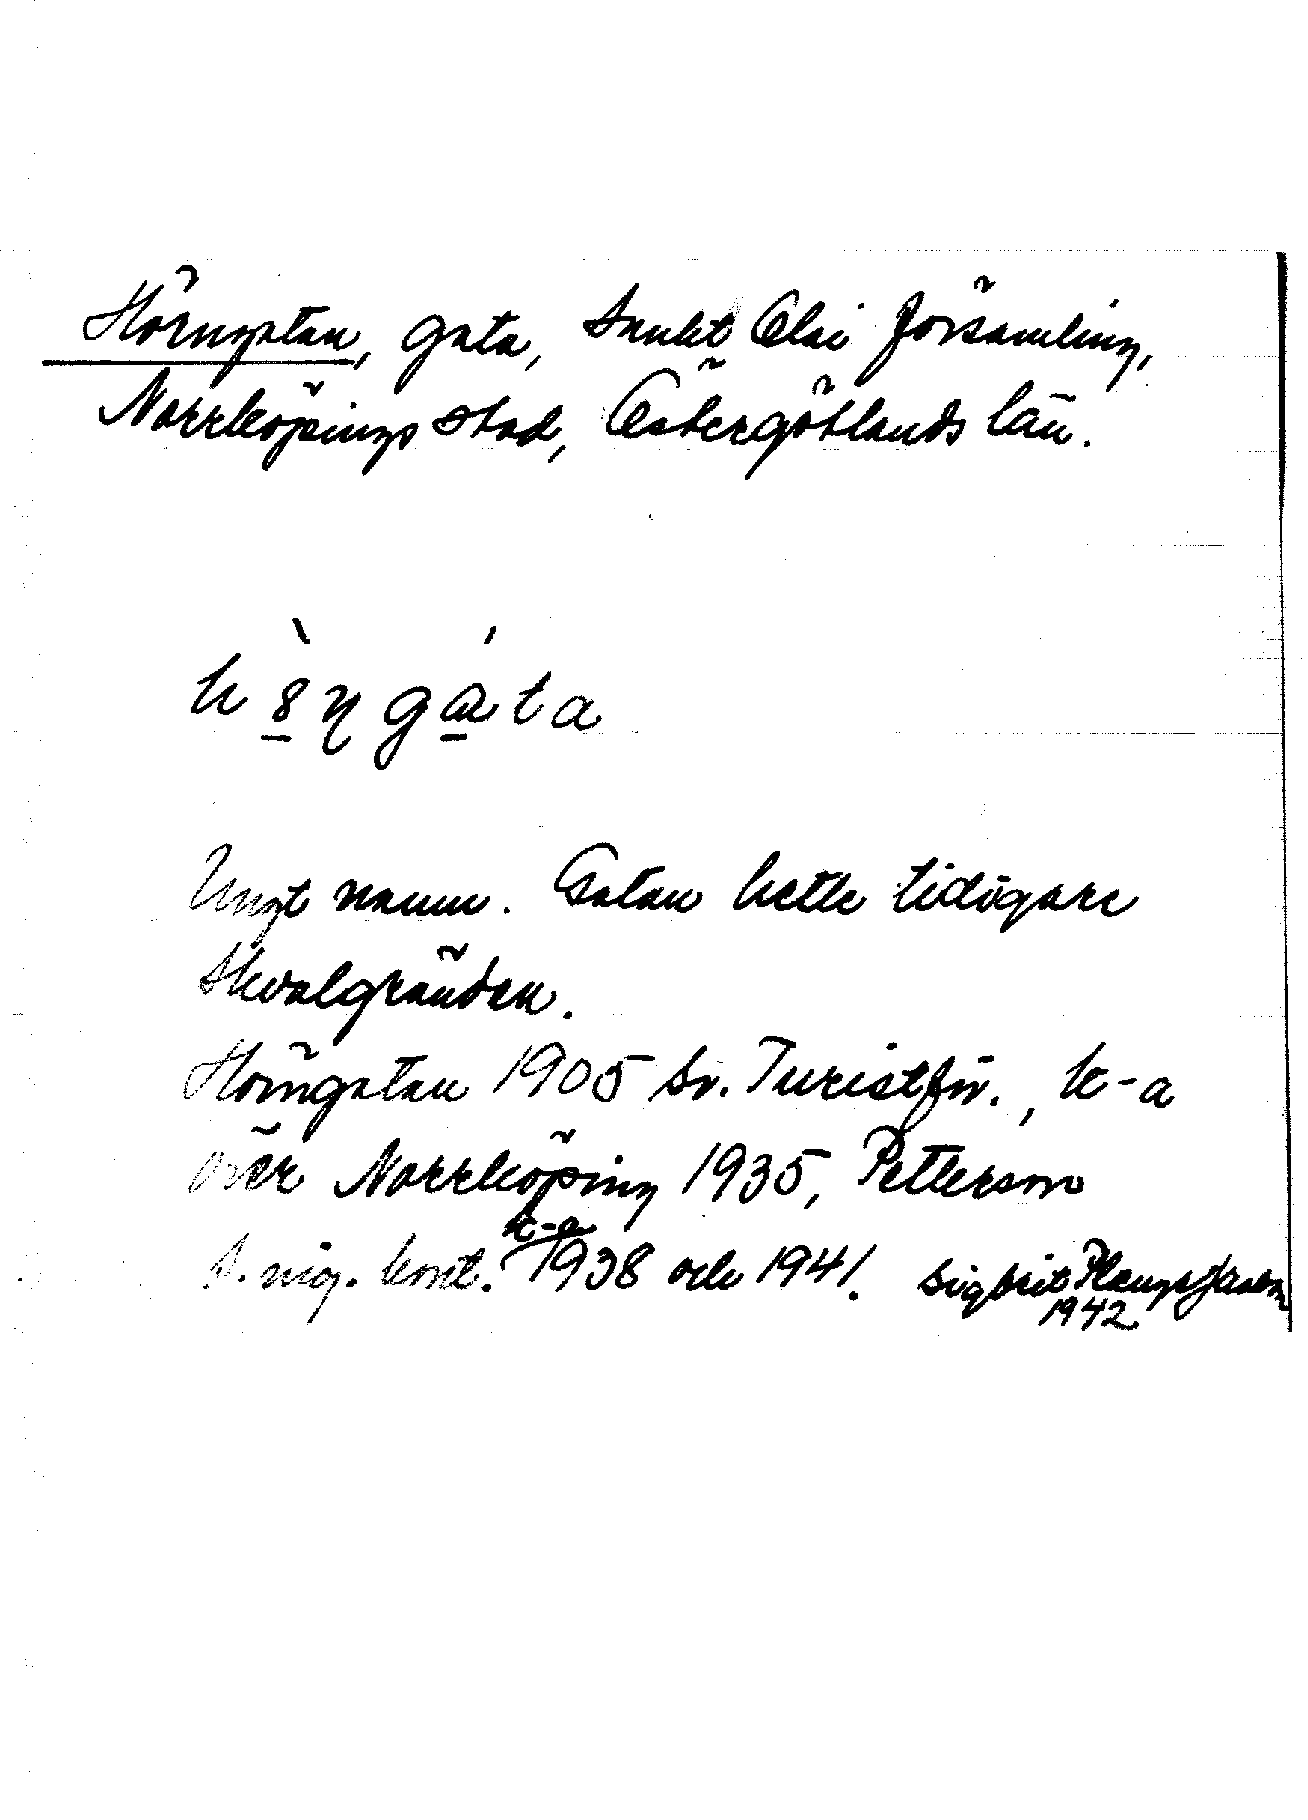 Hörngatan, gata, Sankt Olai församling,
Norrköpings stad, Östergötlands län.
h ö̀ ɳ g á t a
Ungt namn. Gatan hette tidigare
Skvalgränden.
Hörngatan 1905 Sv. Turistför., k-a
över Norrköping 1935, Petterson
k-a
S. ing. kont. 1938 och 1941. Sigbrit
1942